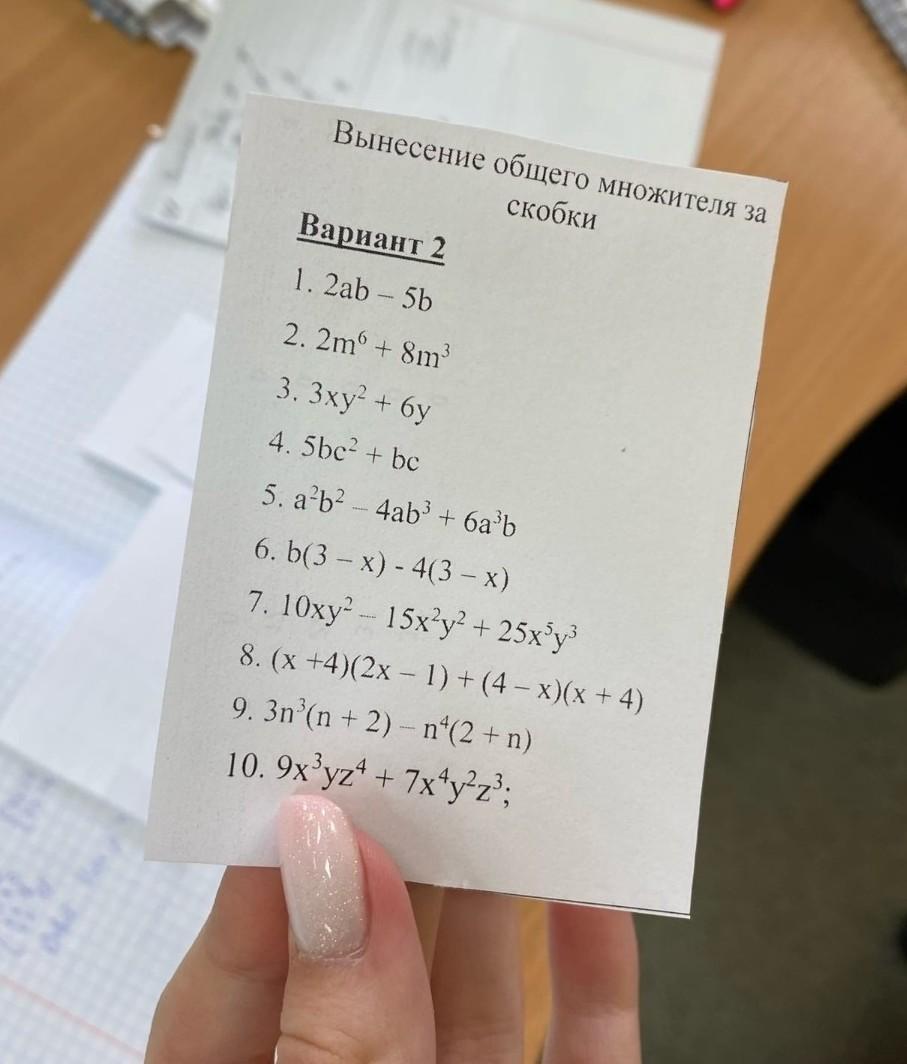 Вынесение общего множителя за
скобки
Вариант 2
1. 2ab – 5b
2. 2m⁶ + 8m³
3. 3xy² + 6y
4. 5bc² + bc
5. a²b² – 4ab³ + 6a³b
6. b(3 – x) - 4(3 – x)
7. 10xy² – 15x²y² + 25x⁵y³
8. (x +4)(2x – 1) + (4 – x)(x + 4)
9. 3n³(n + 2) – n⁴(2 + n)
10. 9x³yz⁴ + 7x⁴y²z³;